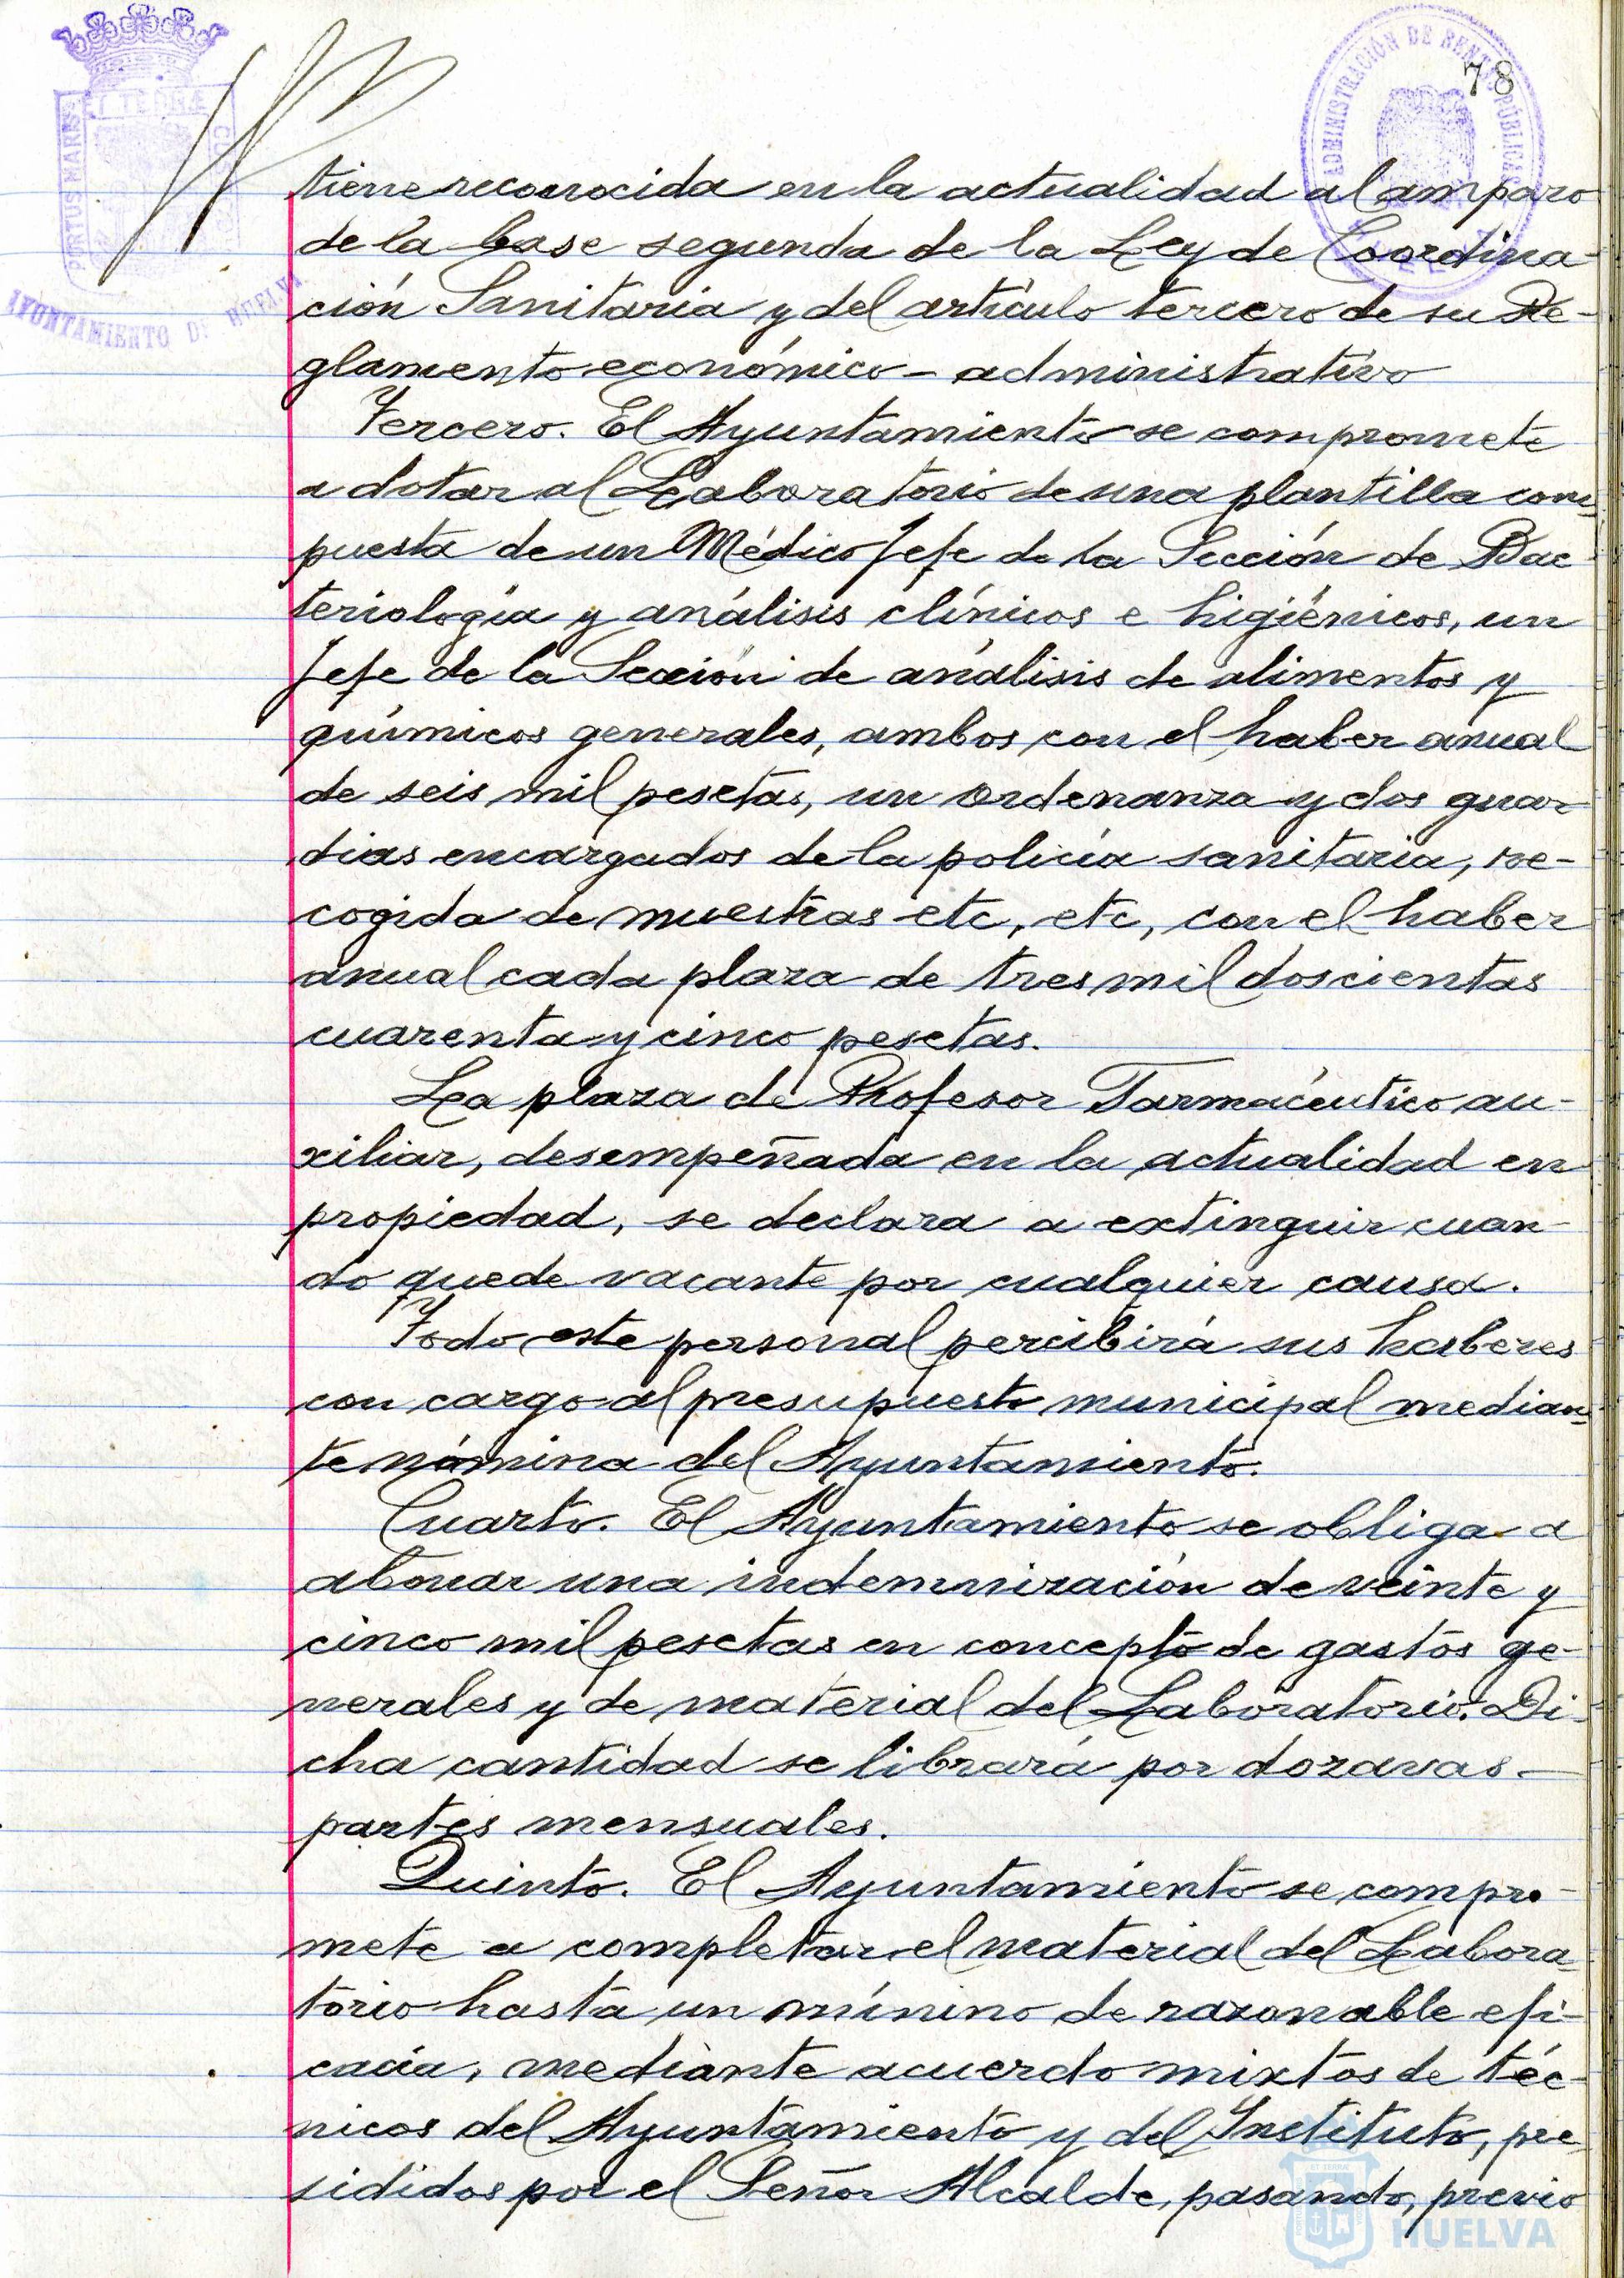 78
ADMINISTRACIÓN DE RENTAS PÚBLICAS
PORTUS MARIS ET TERRÆ CUSTODIA
AYUNTAMIENTO DE HUELVA
tiene reconocida en la actualidad al amparo
de la base segunda de la Ley de Coordina-
ción Sanitaria y del artículo tercero de su Re-
glamento económico-administrativo
Tercero. El Ayuntamiento se compromete
a dotar al Laboratorio de una plantilla com-
puesta de un Médico Jefe de la Sección de Bac-
teriología y análisis clínicos e higiénicos, un
Jefe de la Sección de análisis de alimentos y
químicos generales, ambos con el haber anual
de seis mil pesetas, un ordenanza y dos guar-
dias encargados de la policía sanitaria, re-
cogida de muestras etc, etc, con el haber
anual cada plaza de tres mil doscientas
cuarenta y cinco pesetas.
La plaza de Profesor Farmacéutico au-
xiliar, desempeñada en la actualidad en
propiedad, se declara a extinguir cuan-
do quede vacante por cualquier causa.
Todo este personal percibirá sus haberes
con cargo al presupuesto municipal median-
te nómina del Ayuntamiento.
Cuarto. El Ayuntamiento se obliga a
abonar una indemnización de veinte y
cinco mil pesetas en concepto de gastos ge-
nerales y de material del Laboratorio. Di-
cha cantidad se librará por dozavas
partes mensuales.
Quinto. El Ayuntamiento se compro-
mete a completar el material del Labora-
torio hasta un mínino de razonable efi-
cacia, mediante acuerdo mixtos de téc-
nicos del Ayuntamiento y del Instituto, pre-
sididos por el Señor Alcalde, pasando, previo
HUELVA